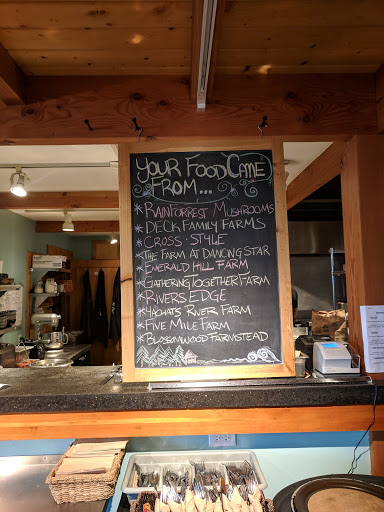 YOUR FOOD CAME
FROM...
* RAINFORREST MUSHROOMS
* DECK FAMILY FARMS
* CROSS-STYLE
* THE FARM AT DANCING STAR
* EMERALD HILL FARM
* GATHERING TOGETHER FARM
* RIVERS EDGE
* YACHATS RIVER FARM
* FIVE MILE FARM
* BLOSSOMWOOD FARMSTEAD